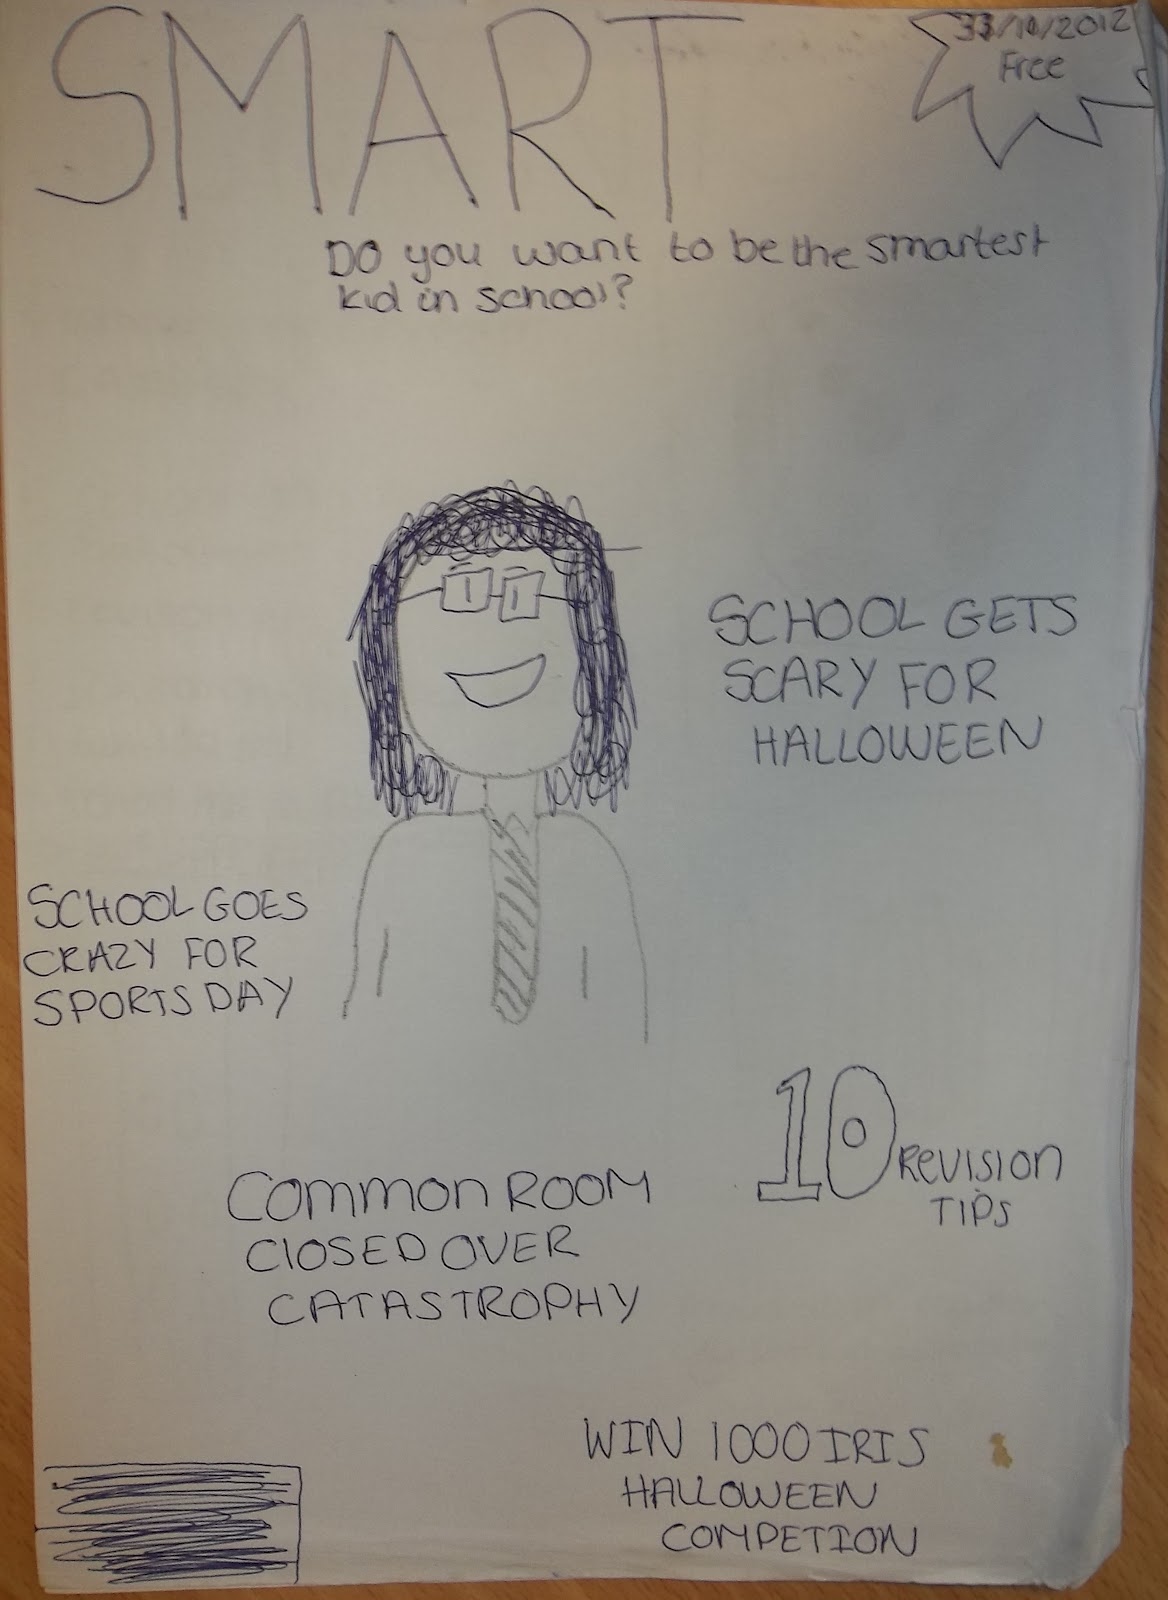 SMART
/10/2012
Free
Do you want to be the smartest
kid in school?
SCHOOL GETS
SCARY FOR
HALLOWEEN
SCHOOL GOES
CRAZY FOR
SPORTS DAY
10 REVISION
TIPS
COMMON ROOM
CLOSED OVER
CATASTROPHY
WIN 1000 IRIS
HALLOWEEN
COMPETION